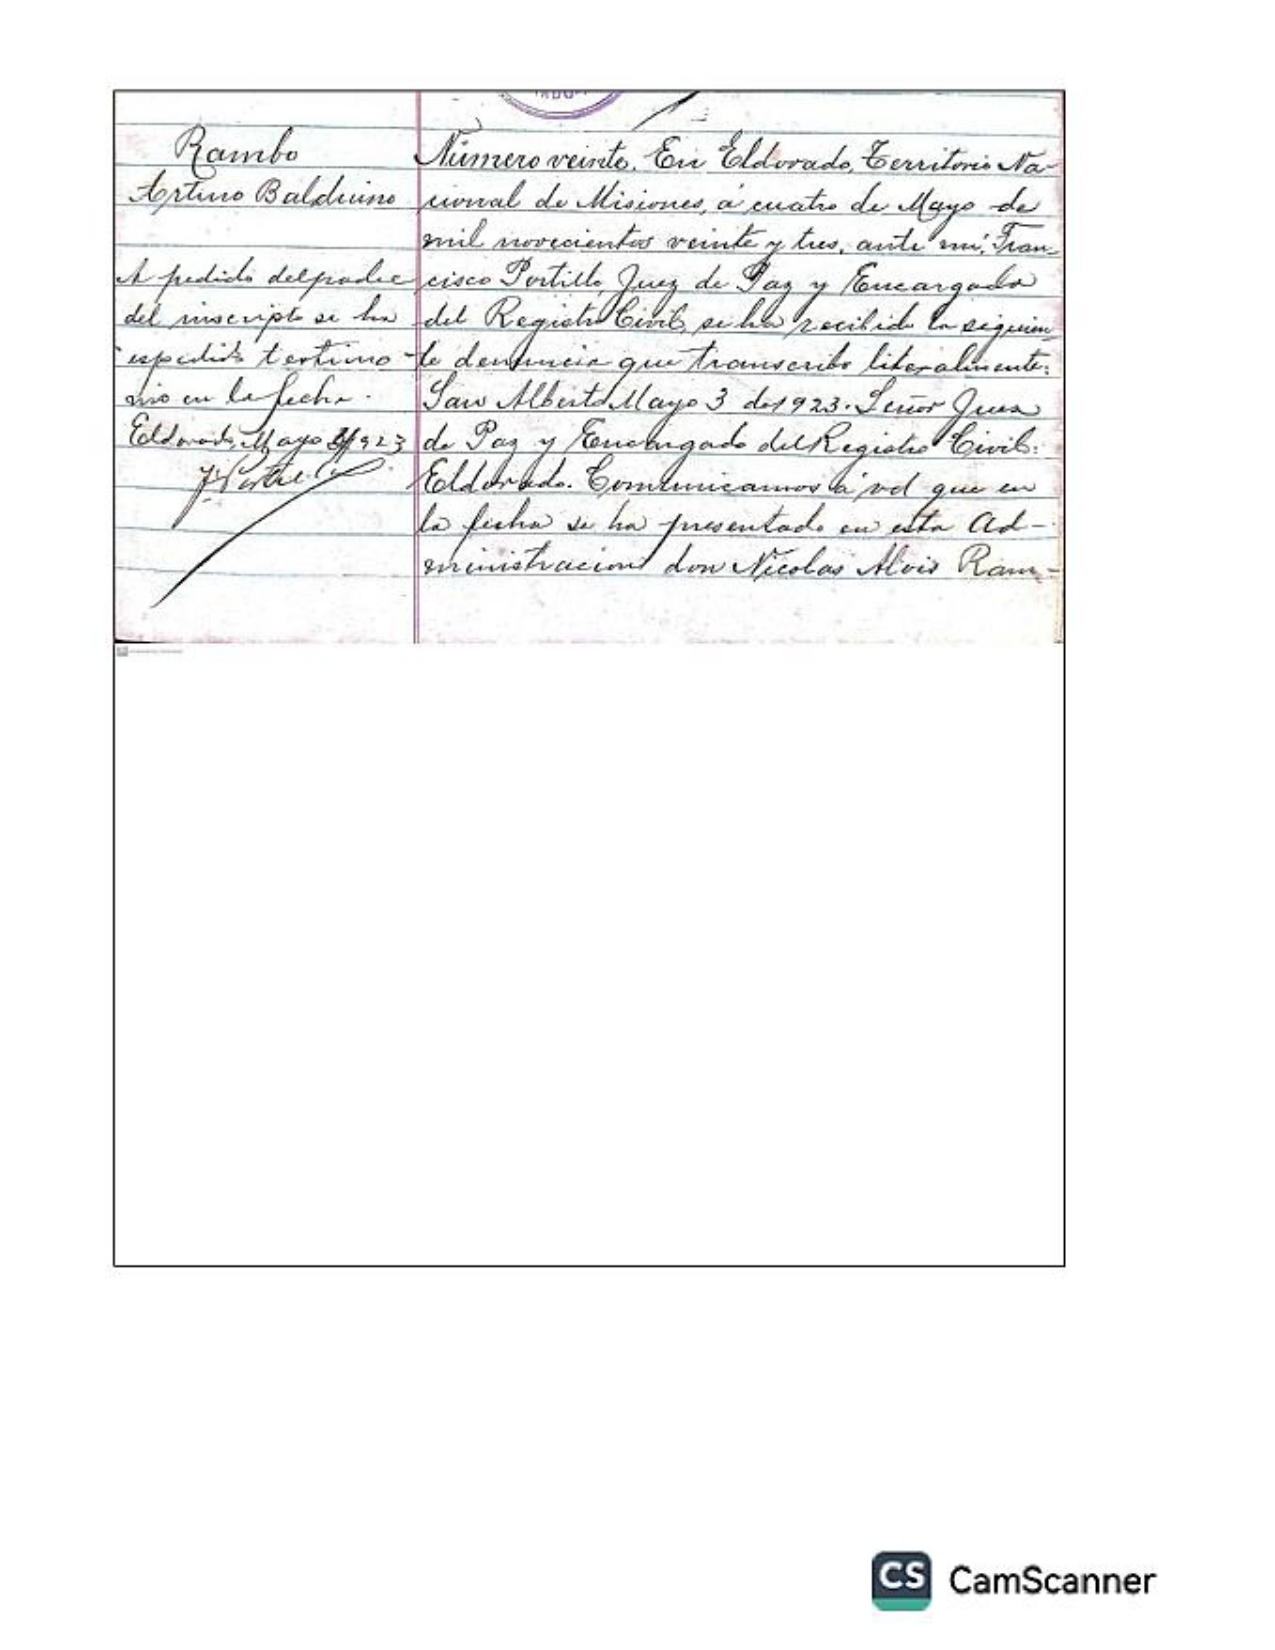 Rambo
Arturo Balduino
A pedido del padre
del inscripto se ha
espedido testimo-
nio en la fecha.
Eldorado, Mayo 1923
Número veinte. En Eldorado, Territorio Na-
cional de Misiones, á cuatro de Mayo de
mil novecientos veinte y tres, ante mi, Fran-
cisco Portillo, Juez de Paz y Encargado
del Registro Civil, se ha recibido la siguien-
te denuncia que transcribo literalmente:
San Alberto Mayo 3 de 1923. Señor Juez
de Paz y Encargado del Registro Civil:
Eldorado. Comunicamos á vd que en
la fecha se ha presentado en esta Ad-
ministracion don Nicolas Alois Ram-
CS CamScanner